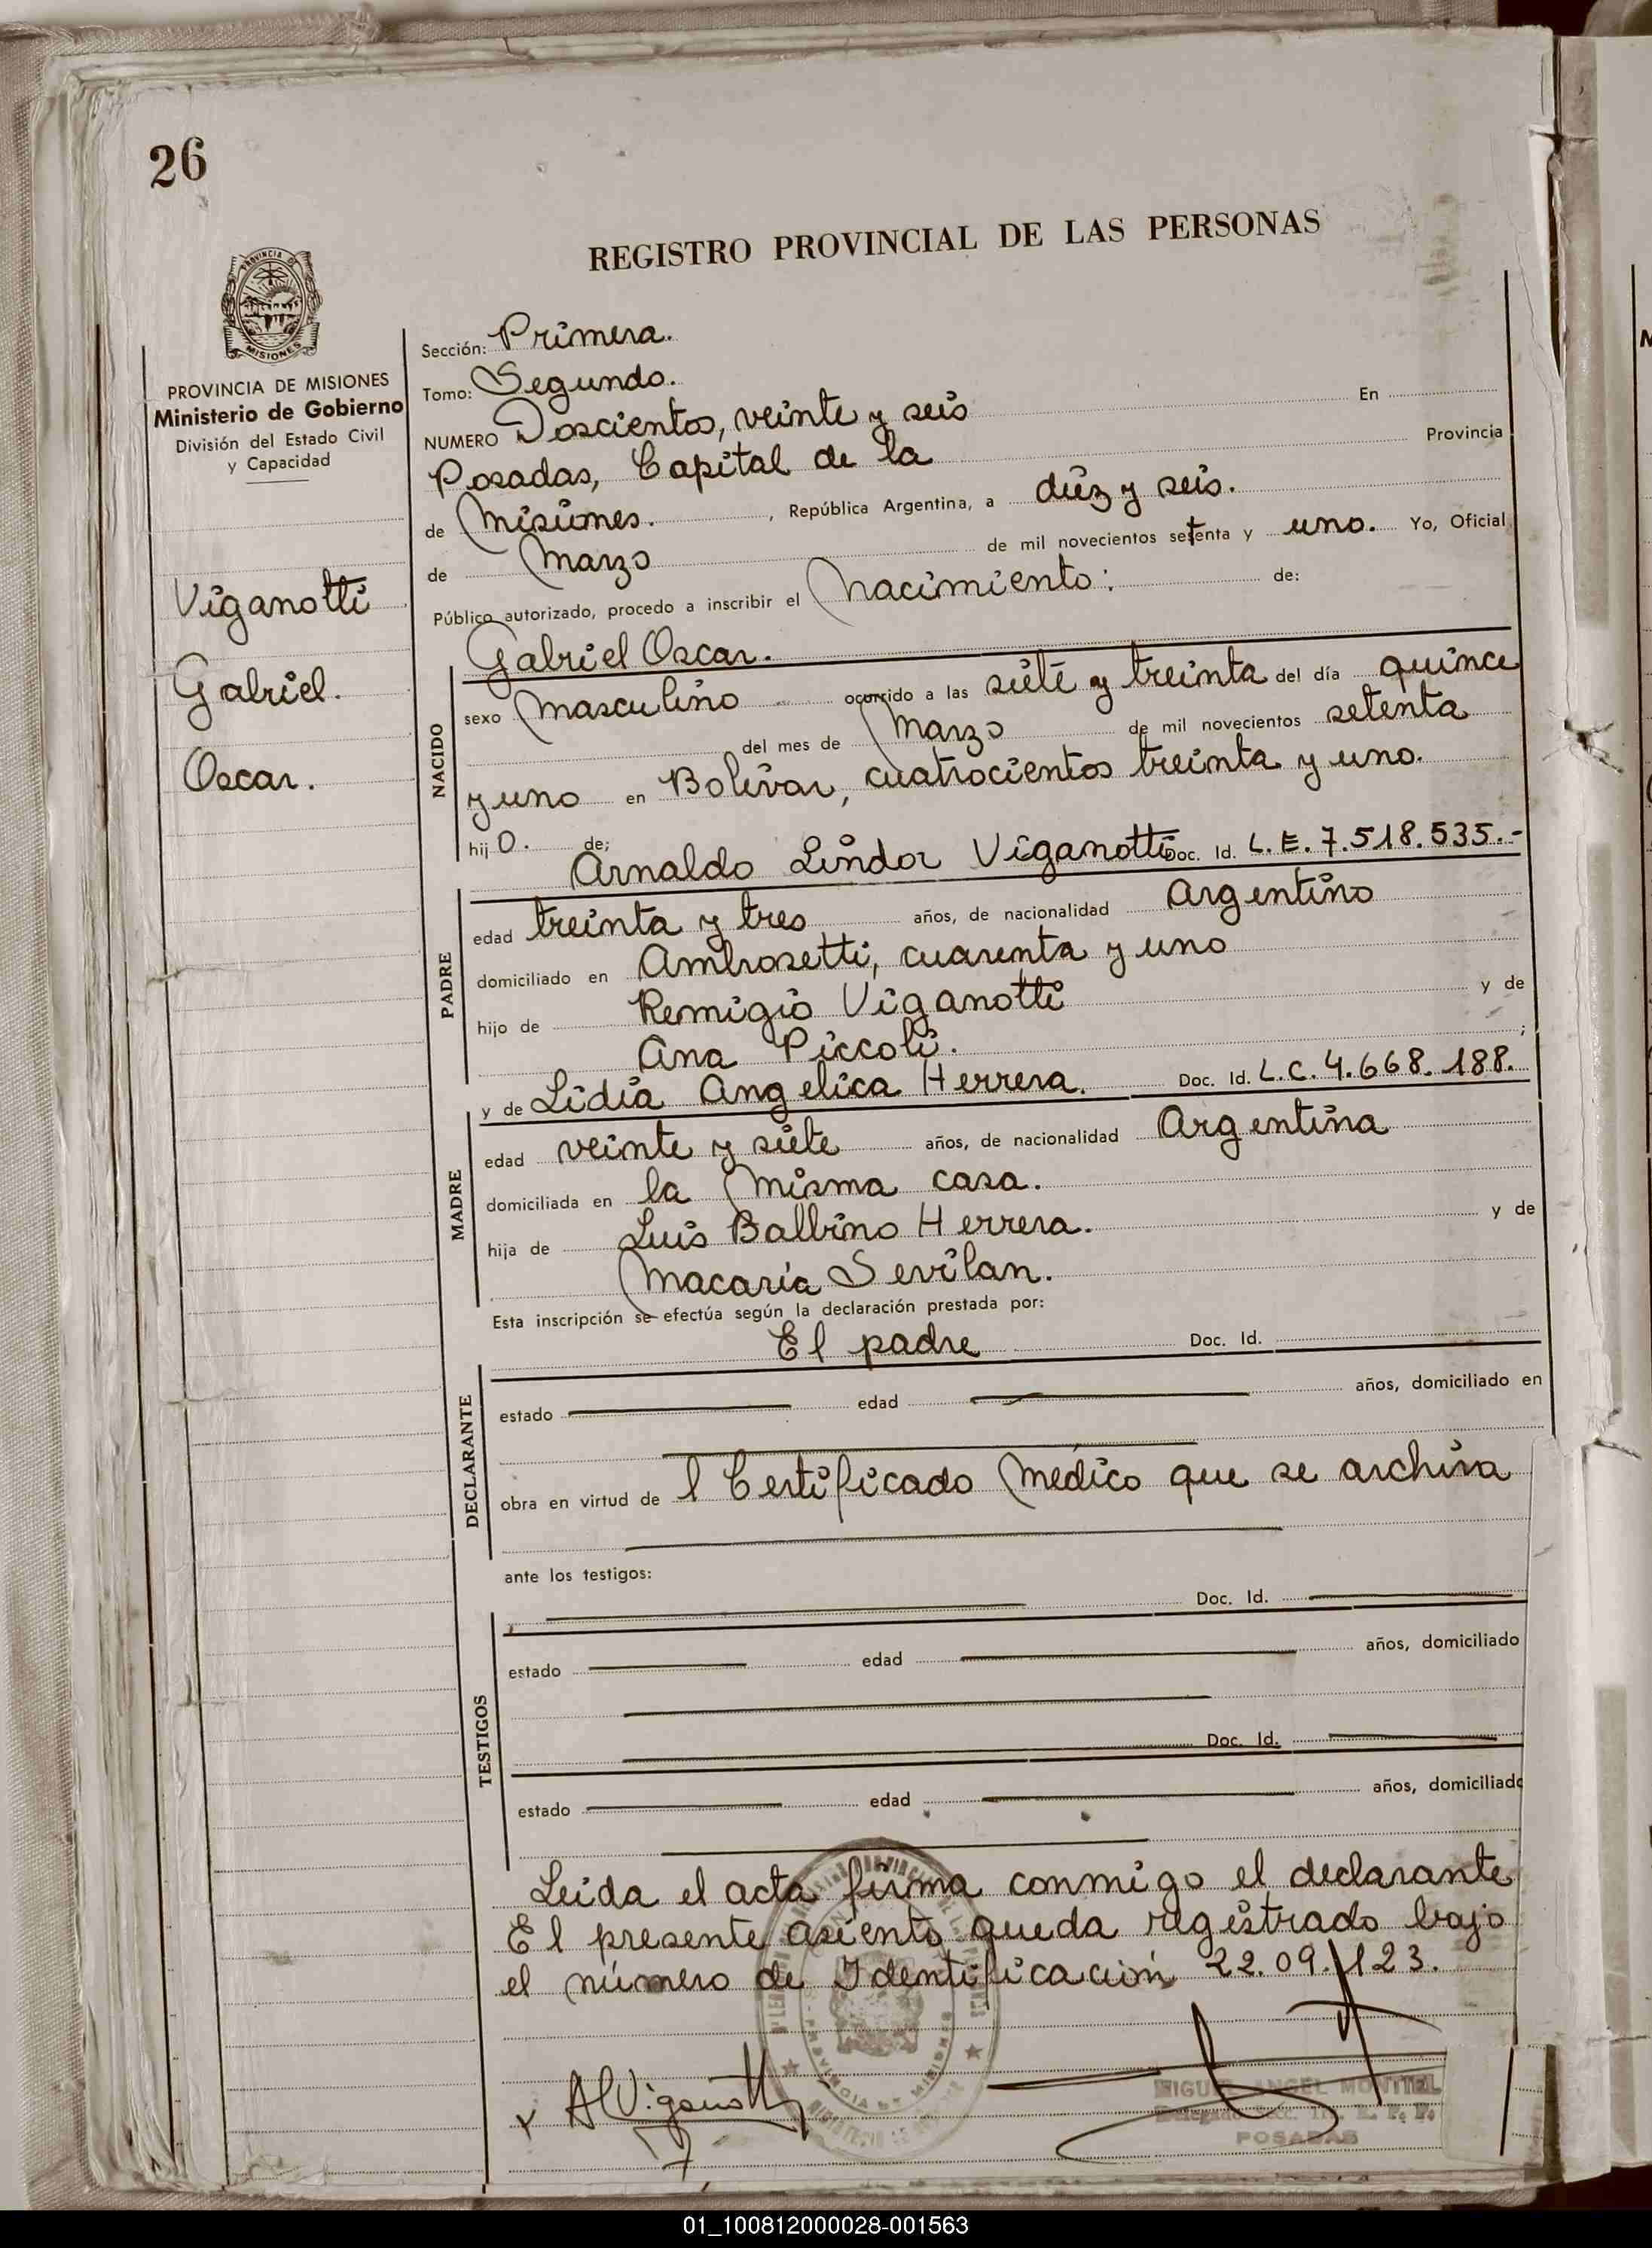 26
REGISTRO PROVINCIAL DE LAS PERSONAS
PROVINCIA DE
MISIONES
PROVINCIA DE MISIONES
Ministerio de Gobierno
División del Estado Civil
y Capacidad
Viganotti
Gabriel.
Oscar.
Sección: Primera.
Tomo: Segundo.
NUMERO Doscientos, veinte y seis En
Posadas, Capital de la Provincia
de Misiones. , República Argentina, a diez y seis.
de Marzo de mil novecientos setenta y uno. Yo, Oficial
Público autorizado, procedo a inscribir el Nacimiento: de:
Gabriel Oscar.
NACIDO
sexo masculino ocorrido a las siete y treinta del día quince
del mes de Marzo de mil novecientos setenta
y uno en Bolívar, cuatrocientos treinta y uno.
hij O. de;
Arnaldo Lindor Viganotti Doc. Id. L.E. 7.518.535.-
PADRE
edad treinta y tres años, de nacionalidad Argentino
domiciliado en Ambrosetti, cuarenta y uno
hijo de Remigio Viganotti y de
Ana Piccoli. ;
y de Lidia Angelica Herrera. Doc. Id. L.C. 4.668.188.
MADRE
edad veinte y siete años, de nacionalidad Argentina
domiciliada en la misma casa.
hija de Luis Balbino Herrera. y de
Macaria Sevilan.
Esta inscripción se efectúa según la declaración prestada por:
El padre Doc. Id.
DECLARANTE
estado edad años, domiciliado en
obra en virtud de l Certificado Médico que se archiva
ante los testigos:
Doc. Id.
TESTIGOS
estado edad años, domiciliado
Doc. Id.
estado edad años, domiciliado
Leida el acta firma conmigo el declarante
El presente asiento queda registrado bajo
el número de Identificación 22.09.123.
PROVINCIA DE MISIONES
x ALViganotti
MIGUEL ANGEL MONTIEL
POSADAS
01_100812000028-001563